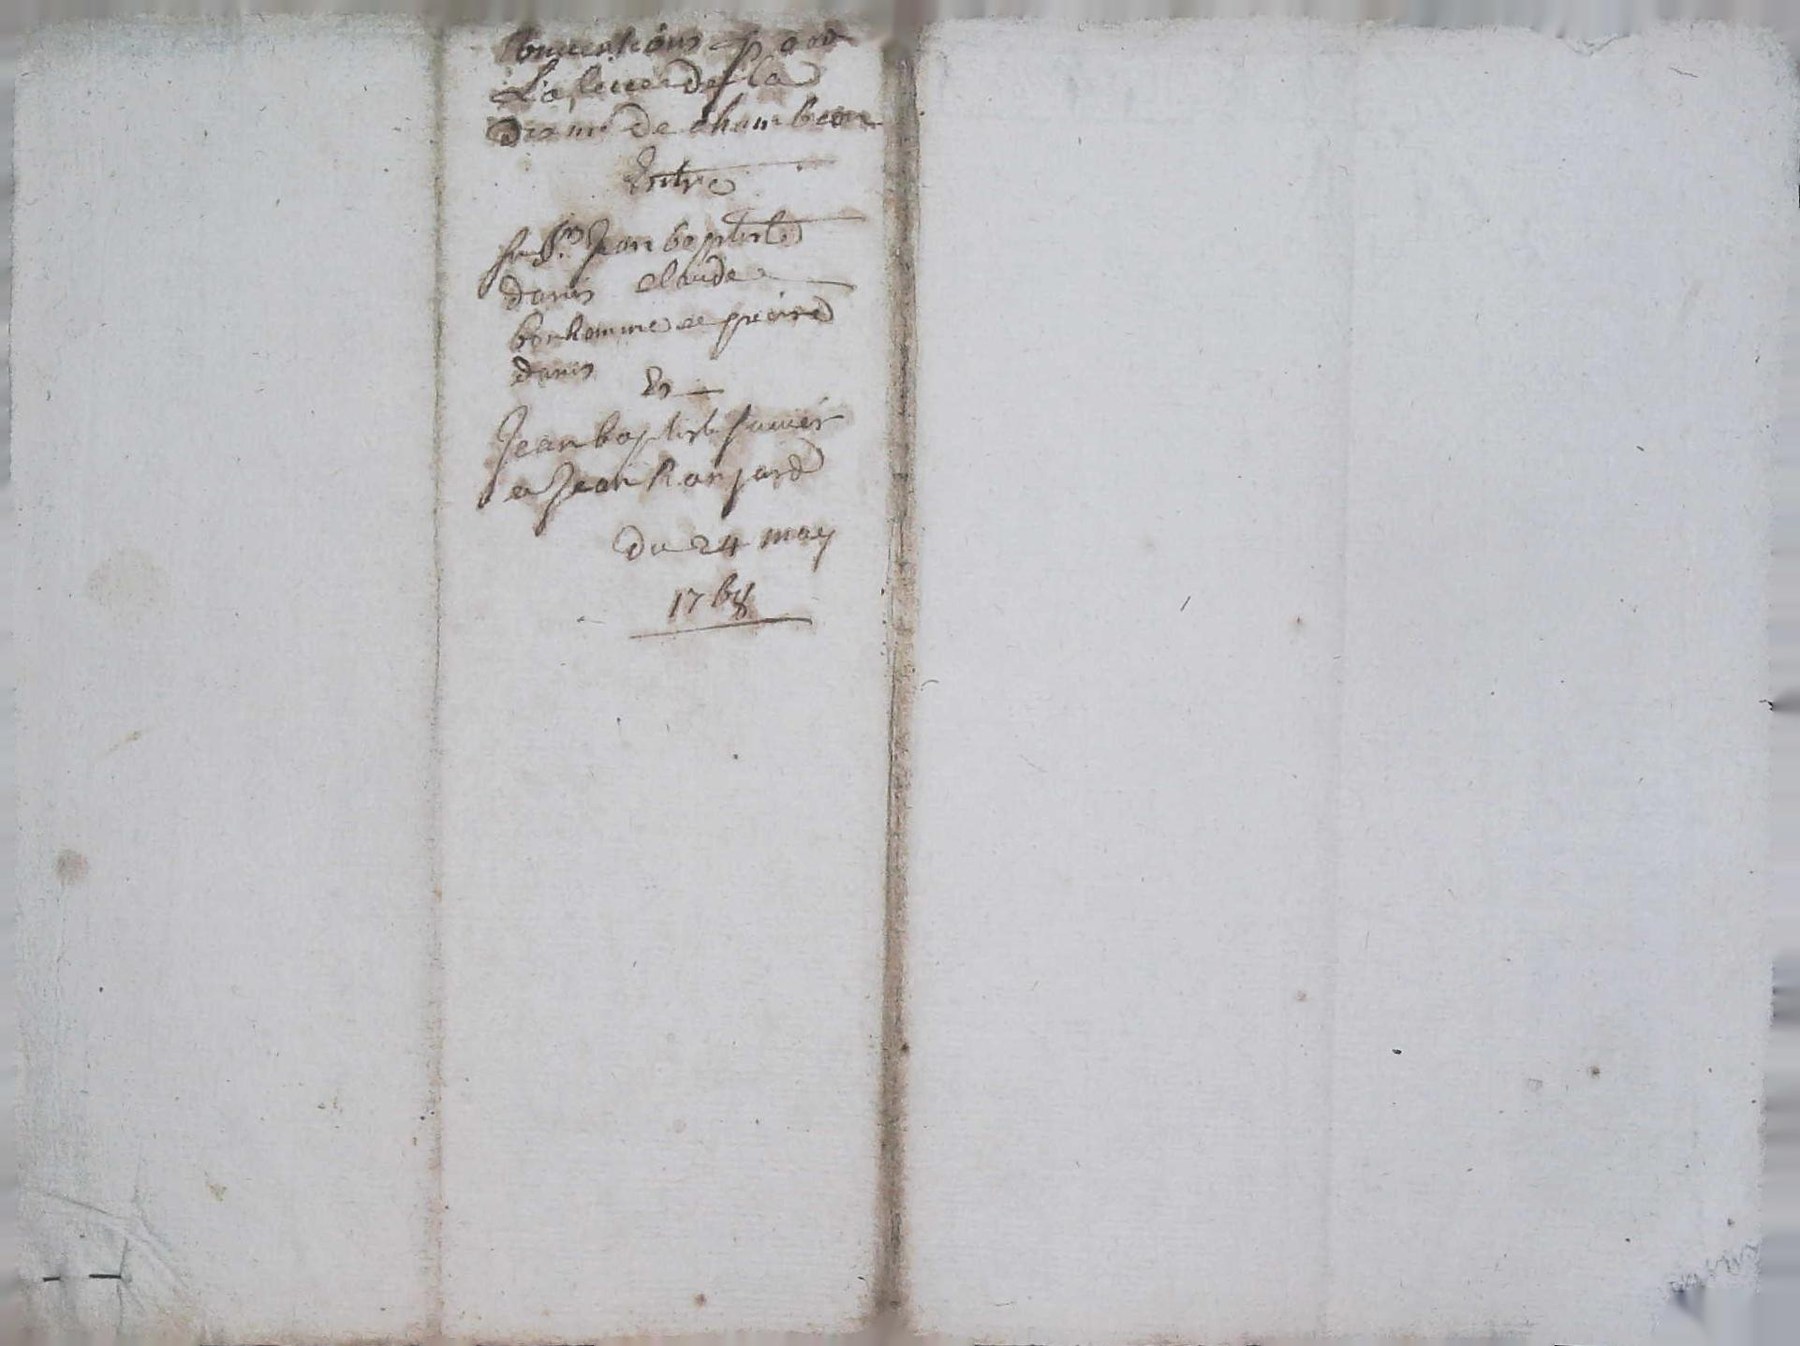 Conventions pour
La levee de la
disme de chambeon
Entre
Sr Jean baptiste
danis claude
bonhomme et pierre
danis
Et
Jean baptiste
et Jean Ranjard
du 24 may
1768